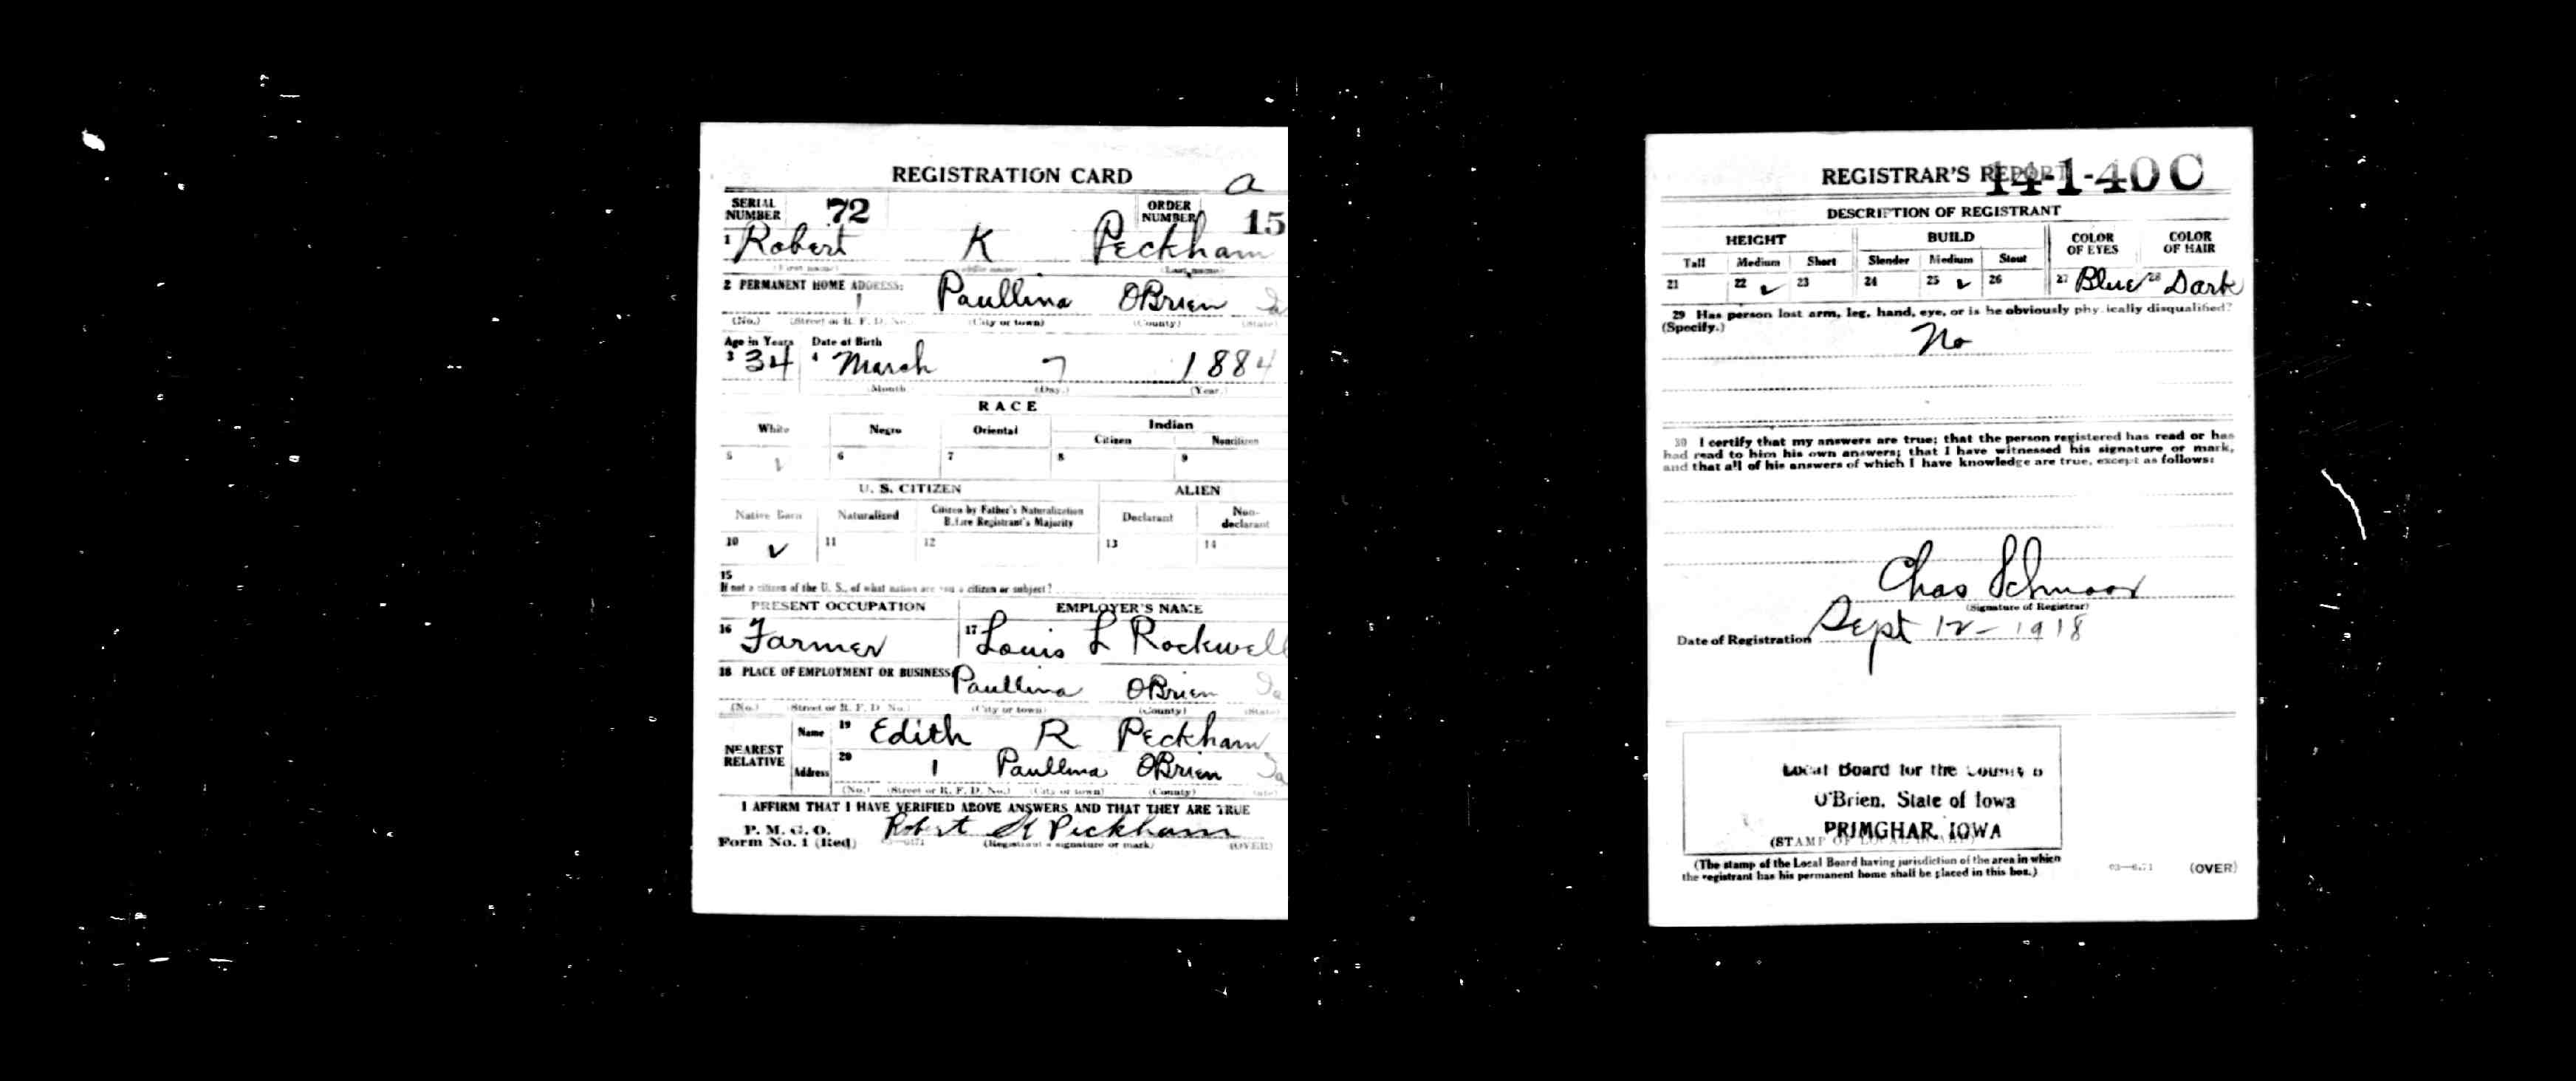 REGISTRATION CARD
a
SERIAL NUMBER 72 ORDER NUMBER 15
1 Robert K Peckham
(First name) (Middle name) (Last name)
2 PERMANENT HOME ADDRESS:
1 Paullina OBrien Ia
(No.) (Street or R. F. D. No.) (City or town) (County) (State)
Age in Years Date of Birth
3 34 4 March 7 1884
(Month) (Day.) (Year.)
RACE
White Negro Oriental Indian
Citizen Noncitizen
5 ✓ 6 7 8 9
U. S. CITIZEN ALIEN
Native Born Naturalized Citizen by Father's Naturalization Before Registrant's Majority Declarant Non-declarant
10 ✓ 11 12 13 14
15
If not a citizen of the U. S., of what nation are you a citizen or subject?
PRESENT OCCUPATION EMPLOYER'S NAME
16 Farmer 17 Louis L Rockwell
18 PLACE OF EMPLOYMENT OR BUSINESS
Paullina OBrien Ia
(No.) (Street or R. F. D. No.) (City or town) (County) (State)
NEAREST RELATIVE
Name 19 Edith R Peckham
Address 20 1 Paullina OBrien Ia
(No.) (Street or R. F. D. No.) (City or town) (County)
I AFFIRM THAT I HAVE VERIFIED ABOVE ANSWERS AND THAT THEY ARE TRUE
P. M. G. O.
Form No. 1 (Red) Robert K Peckham
(Registrant's signature or mark) (OVER)
REGISTRAR'S REPORT 14-1-40 C
DESCRIPTION OF REGISTRANT
HEIGHT BUILD COLOR OF EYES COLOR OF HAIR
Tall Medium Short Slender Medium Stout
21 22 ✓ 23 24 25 ✓ 26 27 Blue 28 Dark
29 Has person lost arm, leg, hand, eye, or is he obviously physically disqualified?
(Specify.)
No
30 I certify that my answers are true; that the person registered has read or has
had read to him his own answers; that I have witnessed his signature or mark,
and that all of his answers of which I have knowledge are true, except as follows:
Chas Schmoor
(Signature of Registrar)
Date of Registration Sept 12 - 1918
Local Board for the County o
O'Brien, State of Iowa
PRIMGHAR, IOWA
(STAMP OF LOCAL BOARD)
(The stamp of the Local Board having jurisdiction of the area in which
the registrant has his permanent home shall be placed in this box.)
(OVER)